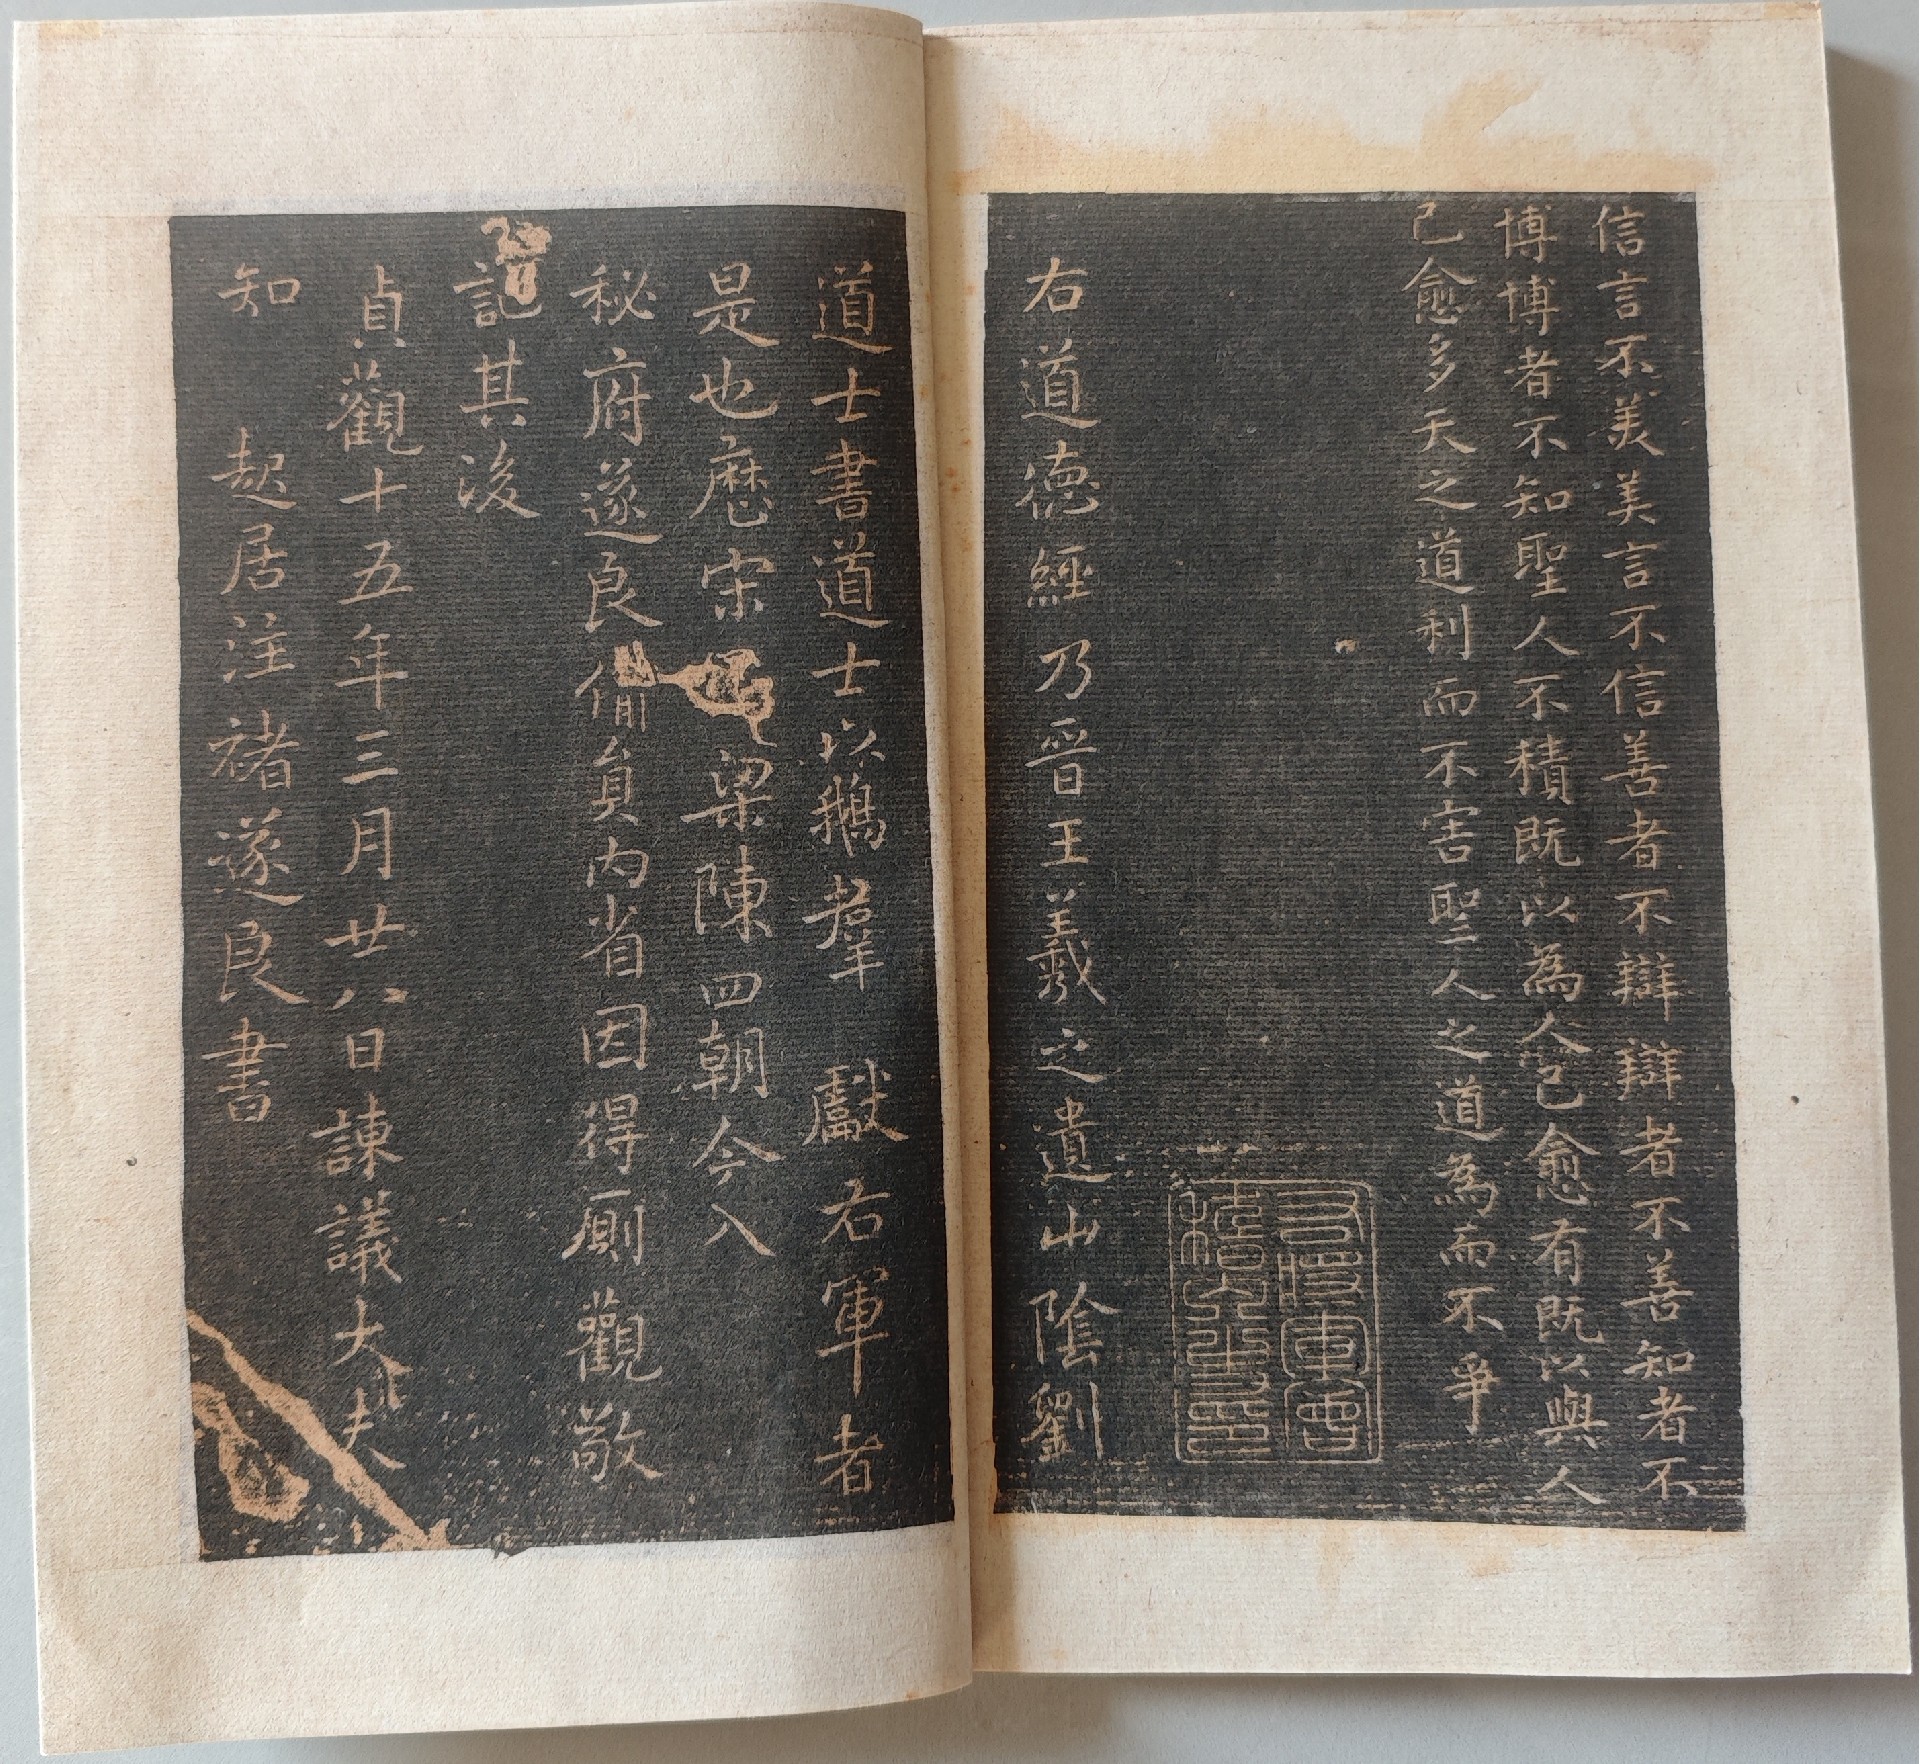 信言不美美言不信善者不辯辯者不善知者不
博博者不知聖人不積既以為人己愈有既以與人
己愈多天之道利而不害聖人之道為而不爭
右將軍會
稽內史印
右道德經乃晉王羲之遺山陰劉
道士書道士以鵝羣獻右軍者
是也歷宋梁陳四朝今入
秘府遂良備員內省因得厠觀敬
記其後
貞觀十五年三月廿八日諫議大夫
知起居注褚遂良書